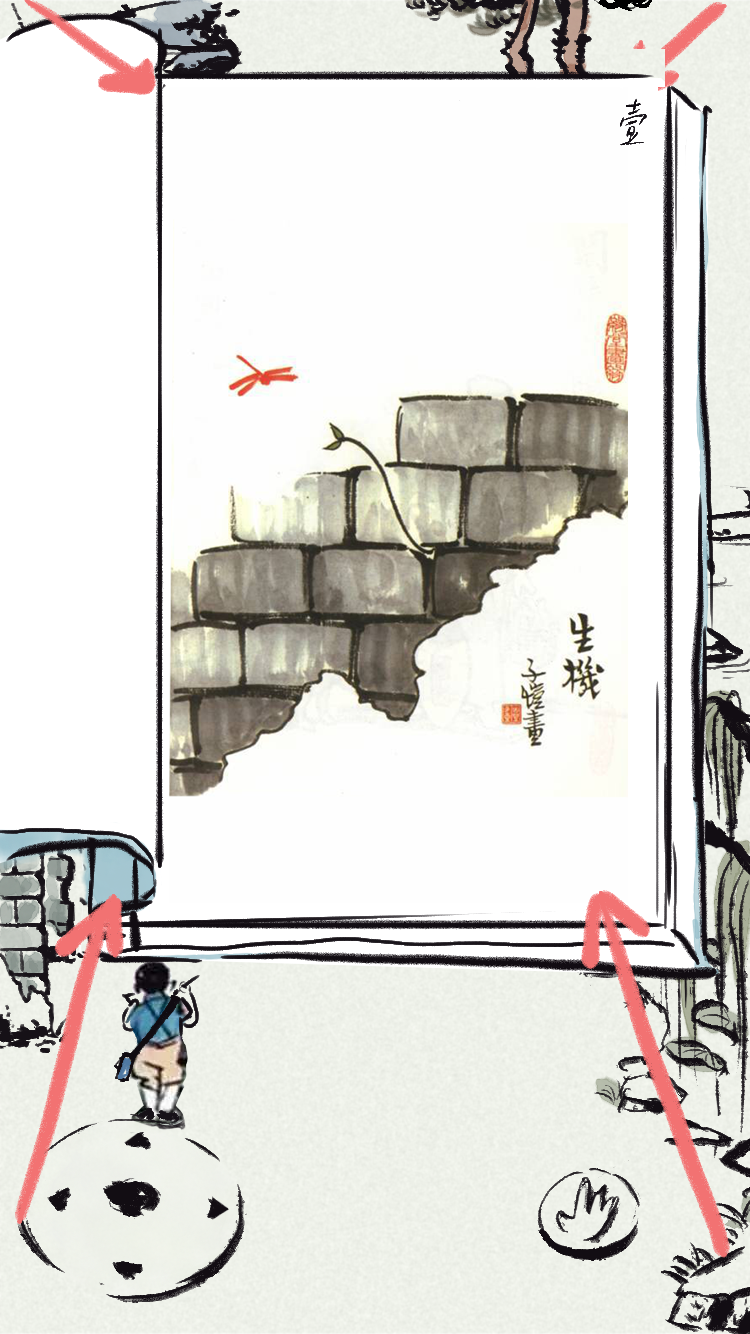 壹
生機
子愷畫